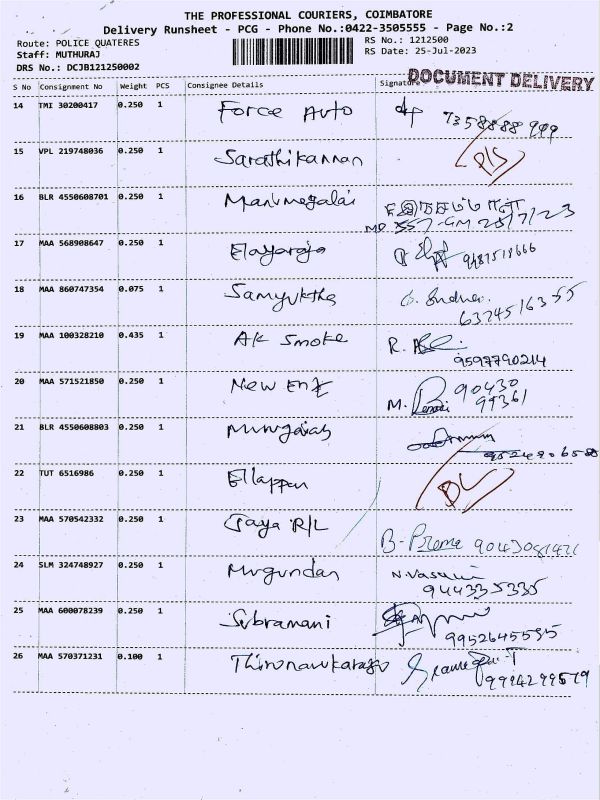 THE PROFESSIONAL COURIERS, COIMBATORE
Delivery Runsheet - PCG - Phone No.:0422-3505555 - Page No.:2
Route: POLICE QUATERES RS No.: 1212500
Staff: MUTHURAJ RS Date: 25-Jul-2023
DRS No.: DCJB121250002
DOCUMENT DELIVERY
S No Consignment No Weight PCS Consignee Details Signature
14 TMI 30200417 0.250 1 Force Auto
15 VPL 219748036 0.250 1 Sarathikannan
16 BLR 4550608701 0.250 1 Manimegalai
25/7/23
17 MAA 568908647 0.250 1 Elayaraja
18 MAA 860747354 0.075 1 Samyuktha
6374516355
19 MAA 100328210 0.435 1 AK Smoke R.
9597790214
20 MAA 571521850 0.250 1 New Enz 90430
M. 99361
21 BLR 4550608803 0.250 1
22 TUT 6516986 0.250 1 Ellappan DL
23 MAA 570542332 0.250 1 Jaya R/L B-Prema
24 SLM 324748927 0.250 1 Mugundan N.Vasuki
944335335
25 MAA 600078239 0.250 1 Subramani
9952645595
26 MAA 570371231 0.100 1 Thirunavukarasu
9994299579